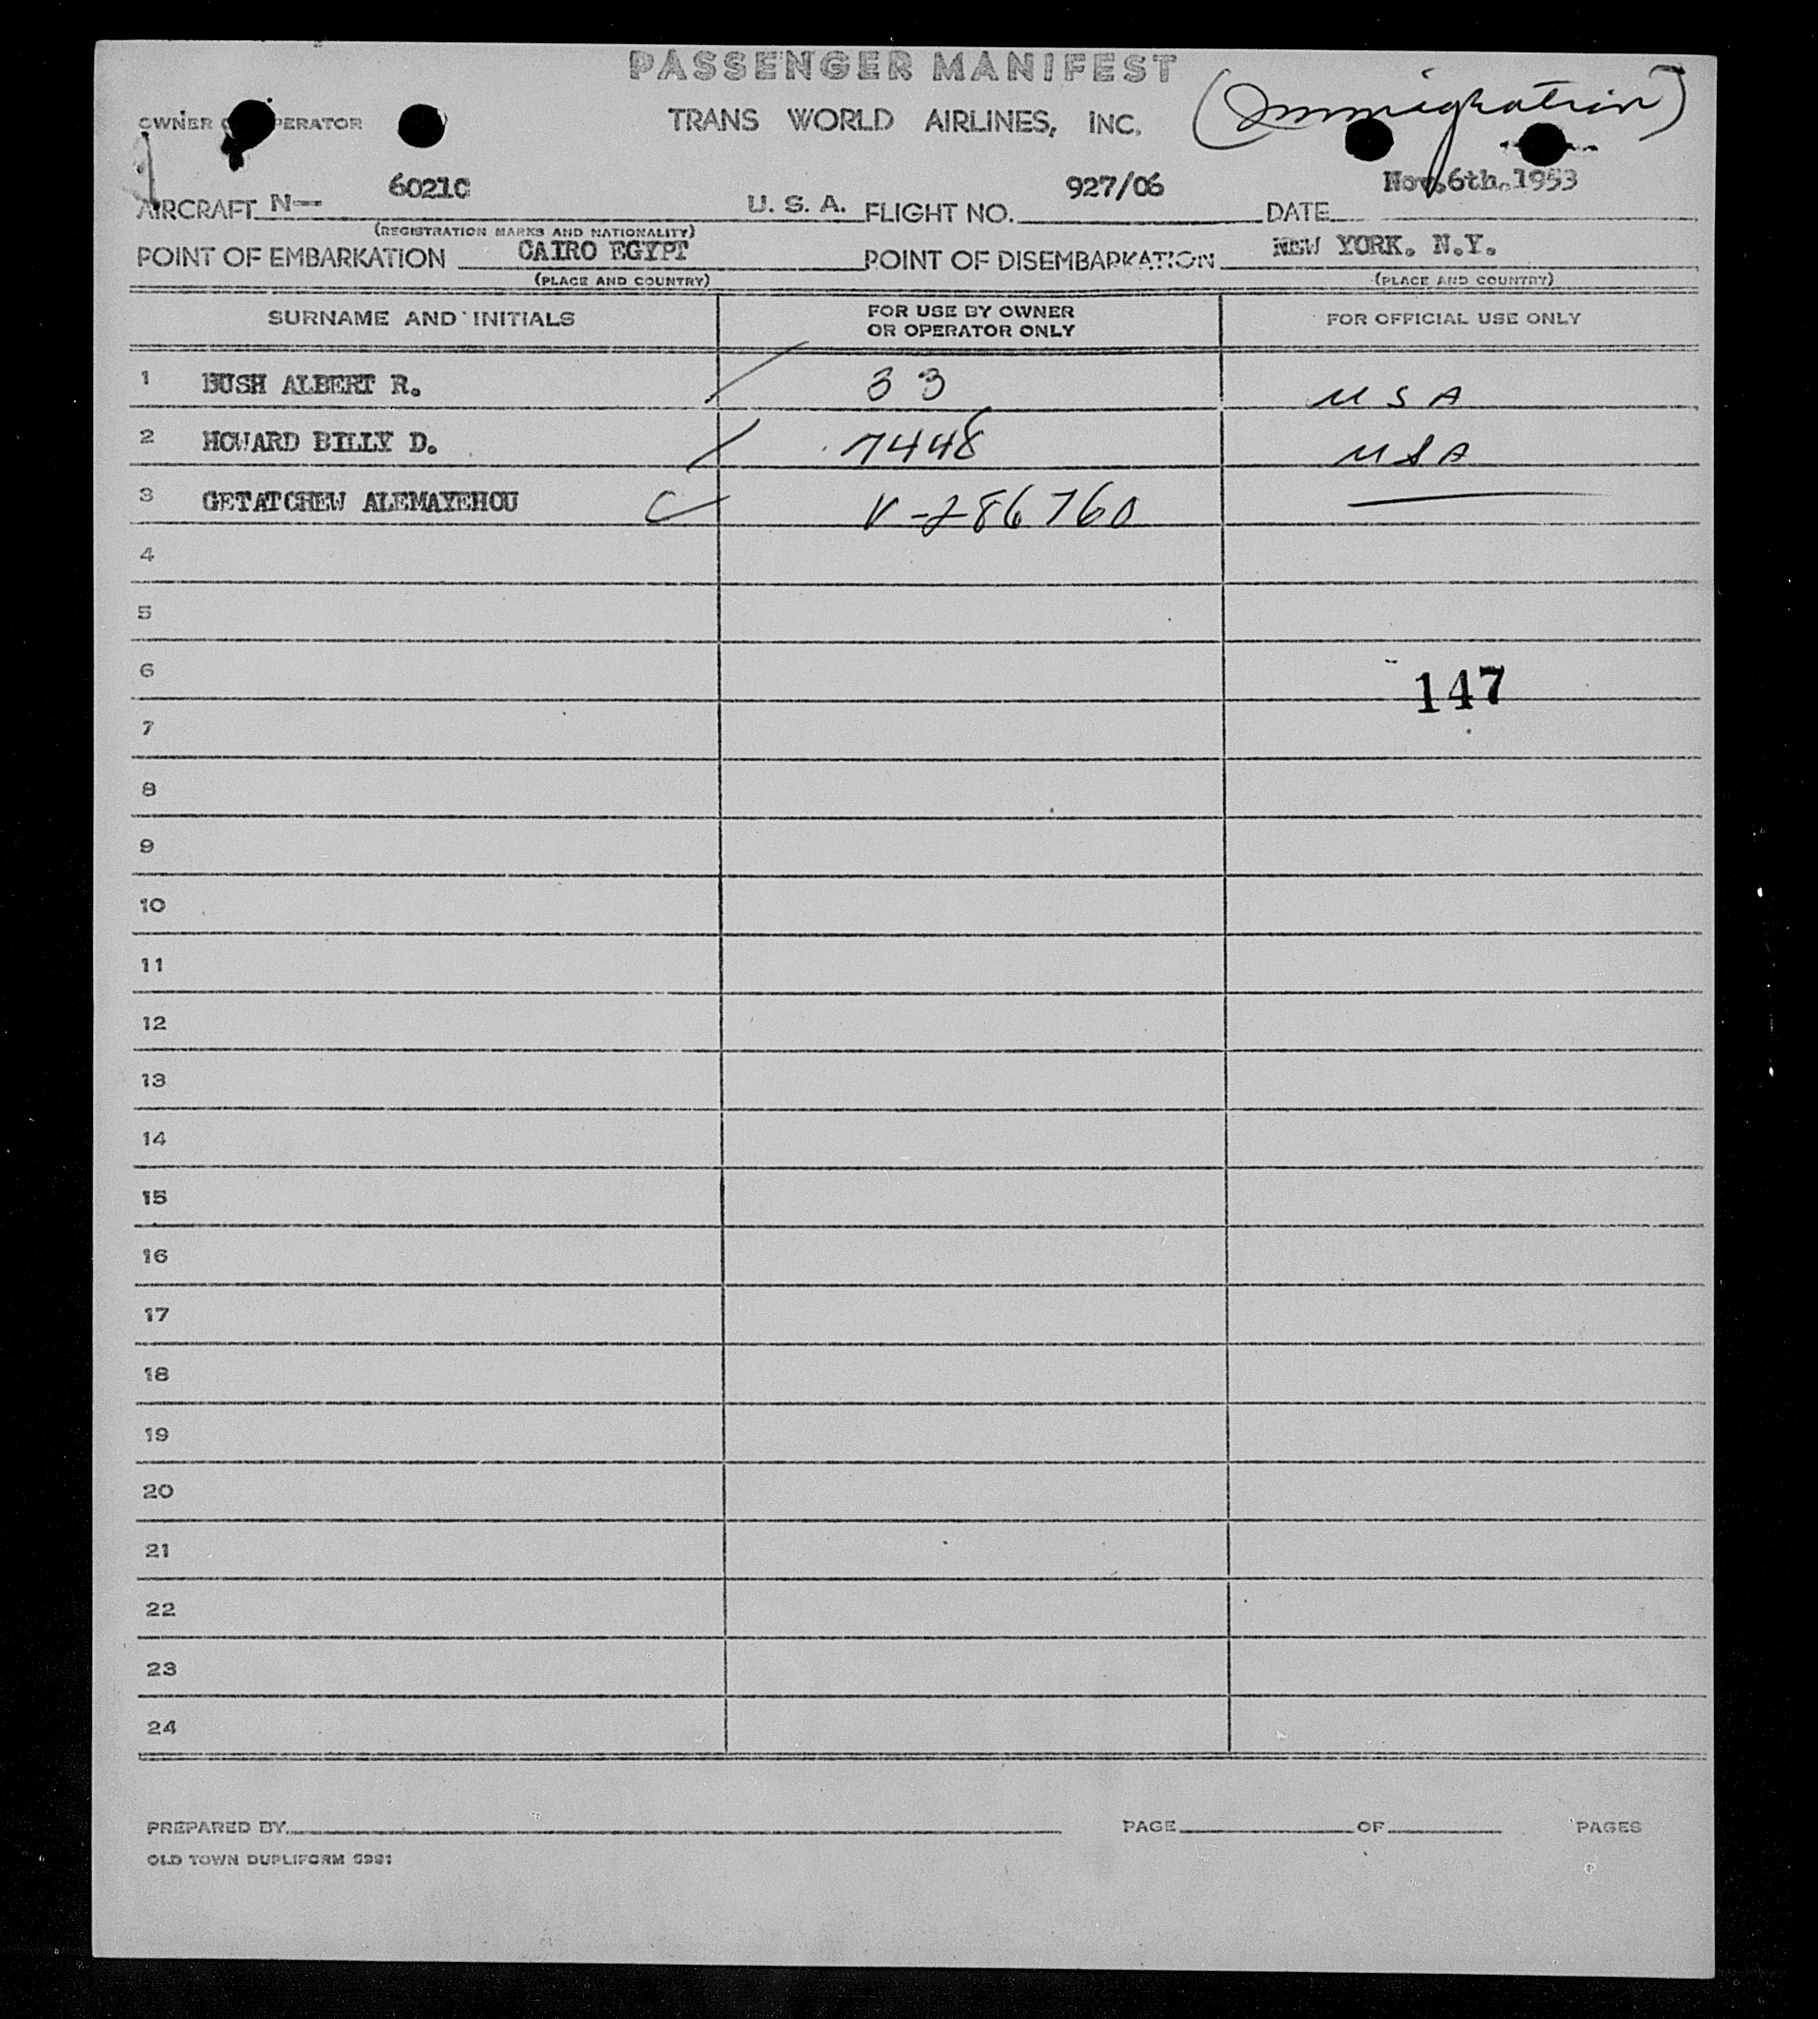 PASSENGER MANIFEST
(Immigration)
OWNER OPERATOR TRANS WORLD AIRLINES, INC.
AIRCRAFT N-- 6021C U. S. A. FLIGHT NO. 927/06 DATE Nov.6th.1953
(REGISTRATION MARKS AND NATIONALITY)
POINT OF EMBARKATION CAIRO EGYPT POINT OF DISEMBARKATION NEW YORK. N.Y.
(PLACE AND COUNTRY) (PLACE AND COUNTRY)
SURNAME AND INITIALS FOR USE BY OWNER OR OPERATOR ONLY FOR OFFICIAL USE ONLY
1 BUSH ALBERT R. 33 USA
2 HOWARD BILLY D. 7448 USA
3 GETATCHEW ALEMAYEHOU C V-286760
4
5
6 147
7
8
9
10
11
12
13
14
15
16
17
18
19
20
21
22
23
24
PREPARED BY PAGE OF PAGES
OLD TOWN DUPLIFORM